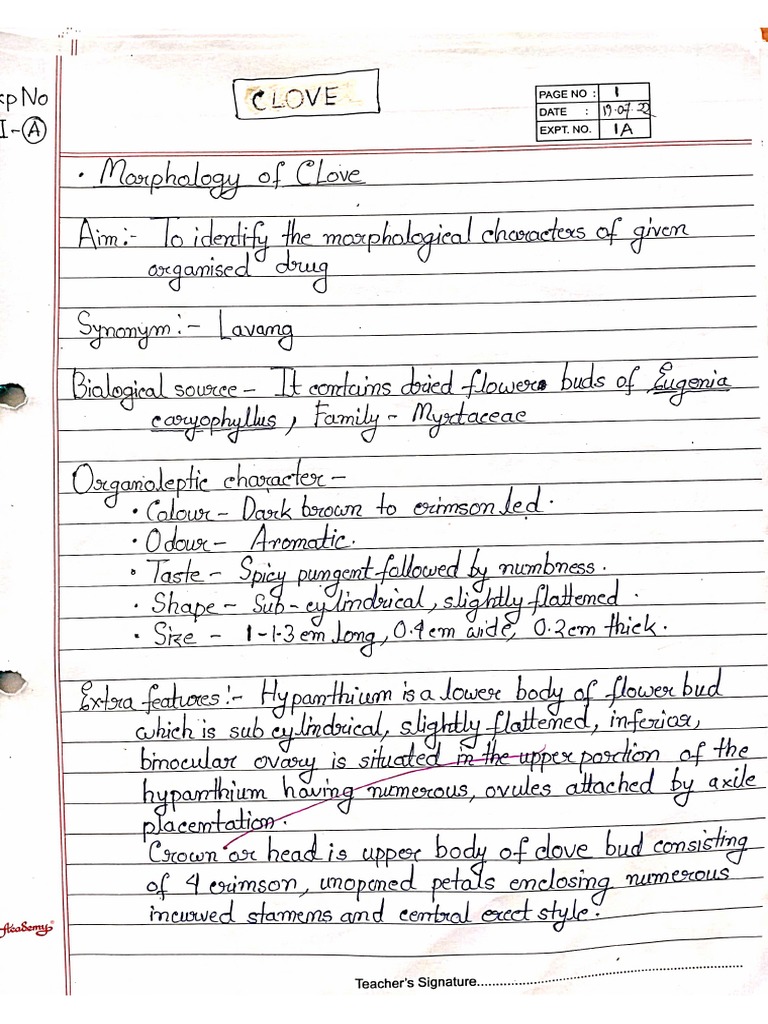 xp No
I-(A)
CLOVE
PAGE NO : 1
DATE : 19.07.22
EXPT. NO. 1A
• Morphology of Clove
Aim:- To identify the morphological characters of given
organised drug
Synonym:- Lavang
Biological source - It contains dried flower buds of Eugenia
caryophyllus, Family - Myrtaceae
Organoleptic character -
• Colour - Dark brown to crimson led.
• Odour - Aromatic.
• Taste - Spicy pungent followed by numbness.
• Shape - Sub-cylindrical, slightly flattened.
• Size - 1-1.3 cm long, 0.4 cm wide, 0.2 cm thick.
Extra features:- Hypanthium is a lower body of flower bud
which is sub cylindrical, slightly flattened, inferior,
binocular ovary is situated in the upper portion of the
hypanthium having numerous, ovules attached by axile
placentation.
Crown or head is upper body of clove bud consisting
of 4 crimson, unopened petals enclosing numerous
incurved stamens and central erect style.
Academy
Teacher's Signature